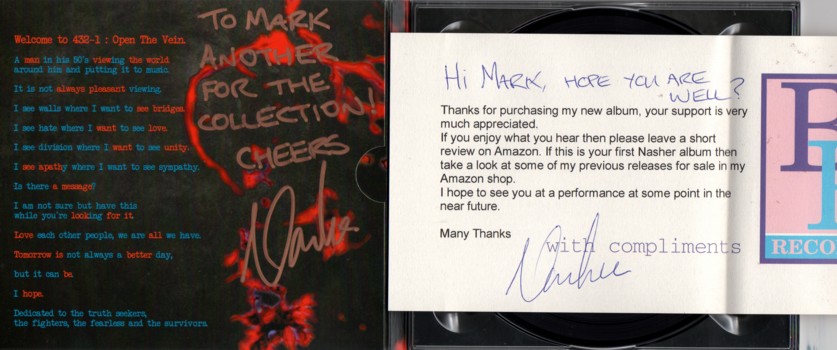 Welcome to 432-1 : Open The Vein.
A man in his 50's viewing the world
around him and putting it to music.
It is not always pleasant viewing.
I see walls where I want to see bridges.
I see hate where I want to see love.
I see division where I want to see unity.
I see apathy where I want to see sympathy.
Is there a message?
I am not sure but have this
while you're looking for it.
Love each other people, we are all we have.
Tomorrow is not always a better day,
but it can be.
I hope.
Dedicated to the truth seekers,
the fighters, the fearless and the survivors.
TO MARK
ANOTHER
FOR THE
COLLECTION!
CHEERS
Nasher
HI MARK, HOPE YOU ARE
WELL?
Thanks for purchasing my new album, your support is very
much appreciated.
If you enjoy what you hear then please leave a short
review on Amazon. If this is your first Nasher album then
take a look at some of my previous releases for sale in my
Amazon shop.
I hope to see you at a performance at some point in the
near future.
Many Thanks
with compliments
Nasher
RECO